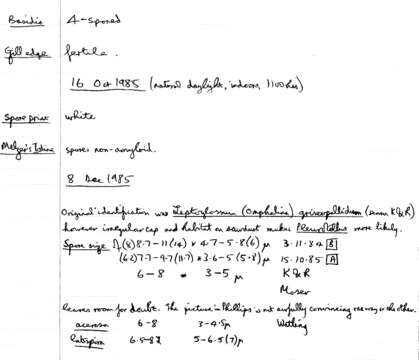 Basidia 4-spored
Gill edge fertile.
16 Oct 1985 (natural daylight, indoors, 1100 hrs)
Spore print white
Melzer's Iodine spores non-amyloid.
8 Dec 1985
Original identification was Leptoglossum (Omphalina) griseopallidum (sensu K&R)
however irregular cap and habitat on sawdust makes Pleurotellus more likely.
Spore size (8) 8.7-11 (14) * 4.7-5.8 (6) µ 3.11.84 B
(6.2) 7.7-9.7 (11.7) * 3.6-5 (5.8) µ 15.10.85 A
6-8 * 3-5 µ K&R
Moser
leaves room for doubt. The picture in Phillips is not awfully convincing one way or the other.
acerosa 6-8 3-4.5µ Watling
6.5-8 5-6.5 (7) µ